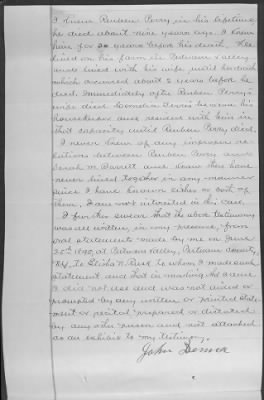 I knew Reuben Perry in his lifetime
he died about nine years ago. I knew
him for 20 years before his death. He
lived on his farm in Putnam Valley
and lived with his wife until her death
which occurred about 2 years before he
died. Immediately after Reuben Perry's
wife died Cornelia Travis became his
housekeeper and resided with him in
that capacity until Reuben Perry died.
I never knew of any improper re-
lations between Reuben Perry and
Sarah M. Barrett and know they have
never lived together in any manner
since I have known either or both of
them, I am not interested in this case.
I further swear that the above testimony
was all written, in my presence, from
oral statements made by me on June
25th 1890, at Putnam Valley, Putnam County,
N.Y., to Elisha N. Rusk to whom I made such
statement and that in making the same
I did not use and was not aided or
prompted by any written or printed state-
ment or recital prepared or dictated
by any other person and not attached
as an exhibit to my testimony.
John